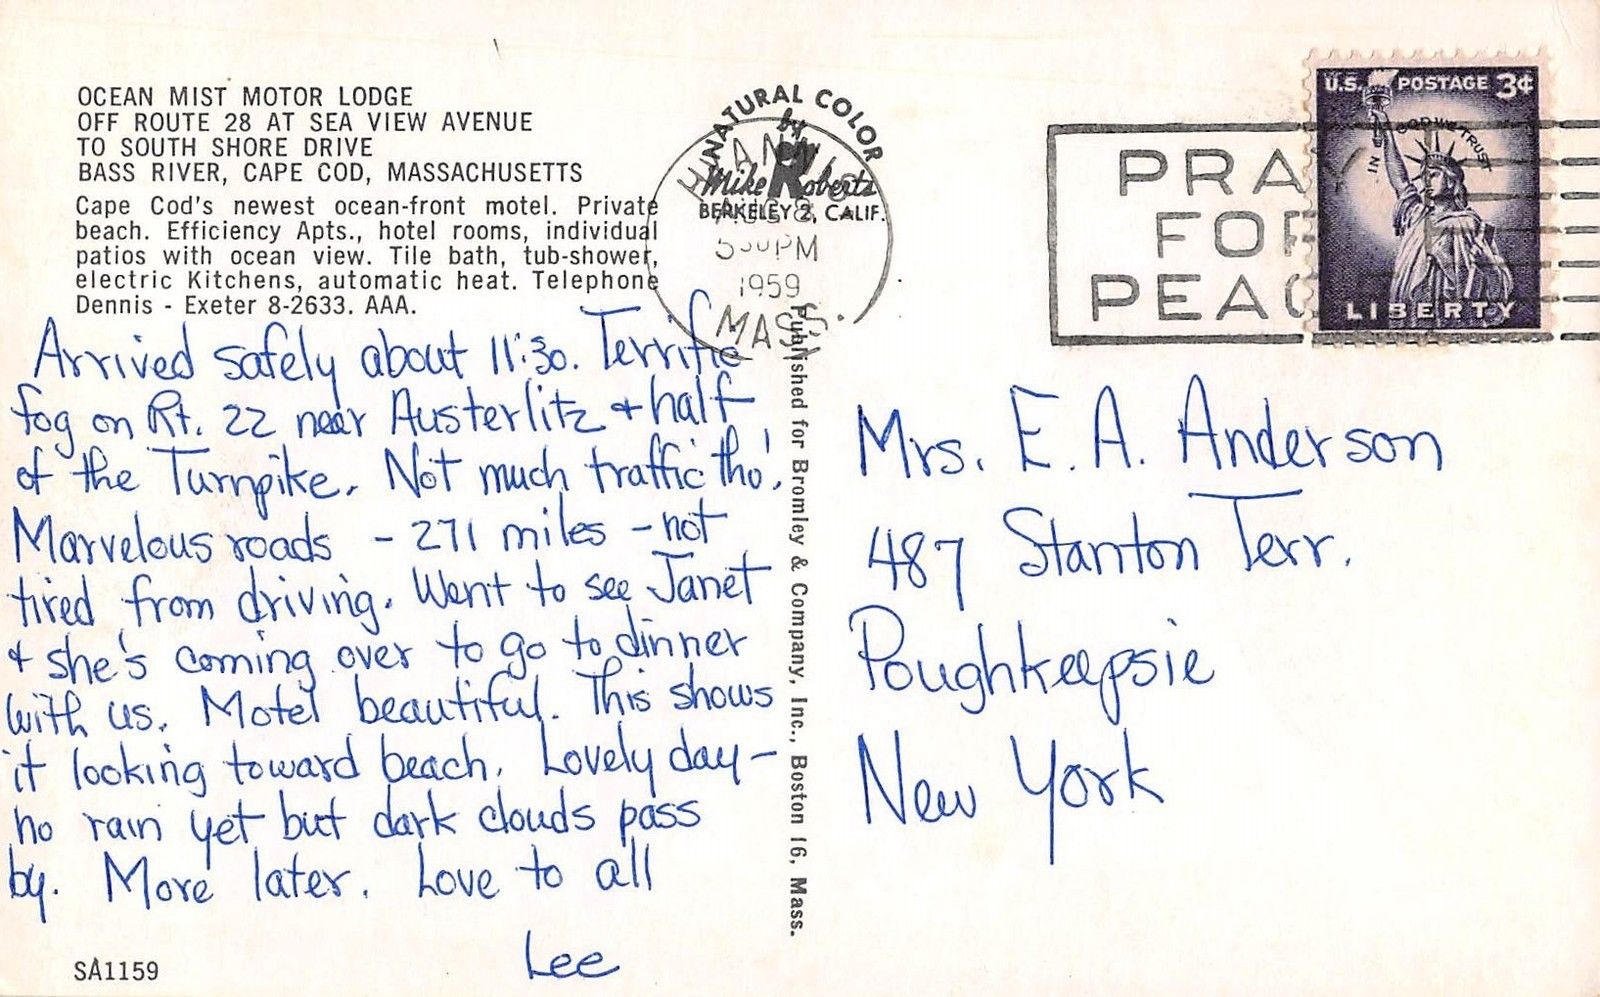 OCEAN MIST MOTOR LODGE
OFF ROUTE 28 AT SEA VIEW AVENUE
TO SOUTH SHORE DRIVE
BASS RIVER, CAPE COD, MASSACHUSETTS
Cape Cod's newest ocean-front motel. Private
beach. Efficiency Apts., hotel rooms, individual
patios with ocean view. Tile bath, tub-shower,
electric Kitchens, automatic heat. Telephone
Dennis - Exeter 8-2633. AAA.
Arrived safely about 11:30. Terrific
fog on Rt. 22 near Austerlitz + half
of the Turnpike. Not much traffic tho'.
Marvelous roads - 271 miles - not
tired from driving. Went to see Janet
+ she's coming over to go to dinner
with us. Motel beautiful. This shows
it looking toward beach. Lovely day -
no rain yet but dark clouds pass
by. More later. Love to all
Lee
SA1159
NATURAL COLOR
by
Mike Roberts
BERKELEY 2, CALIF.
PM
1959
MASS.
Published for Bromley & Company, Inc., Boston 16, Mass.
PRAY
FOR
PEAC
U.S. POSTAGE 3¢
IN GOD WE TRUST
LIBERTY
Mrs. E. A. Anderson
487 Stanton Terr.
Poughkeepsie
New York